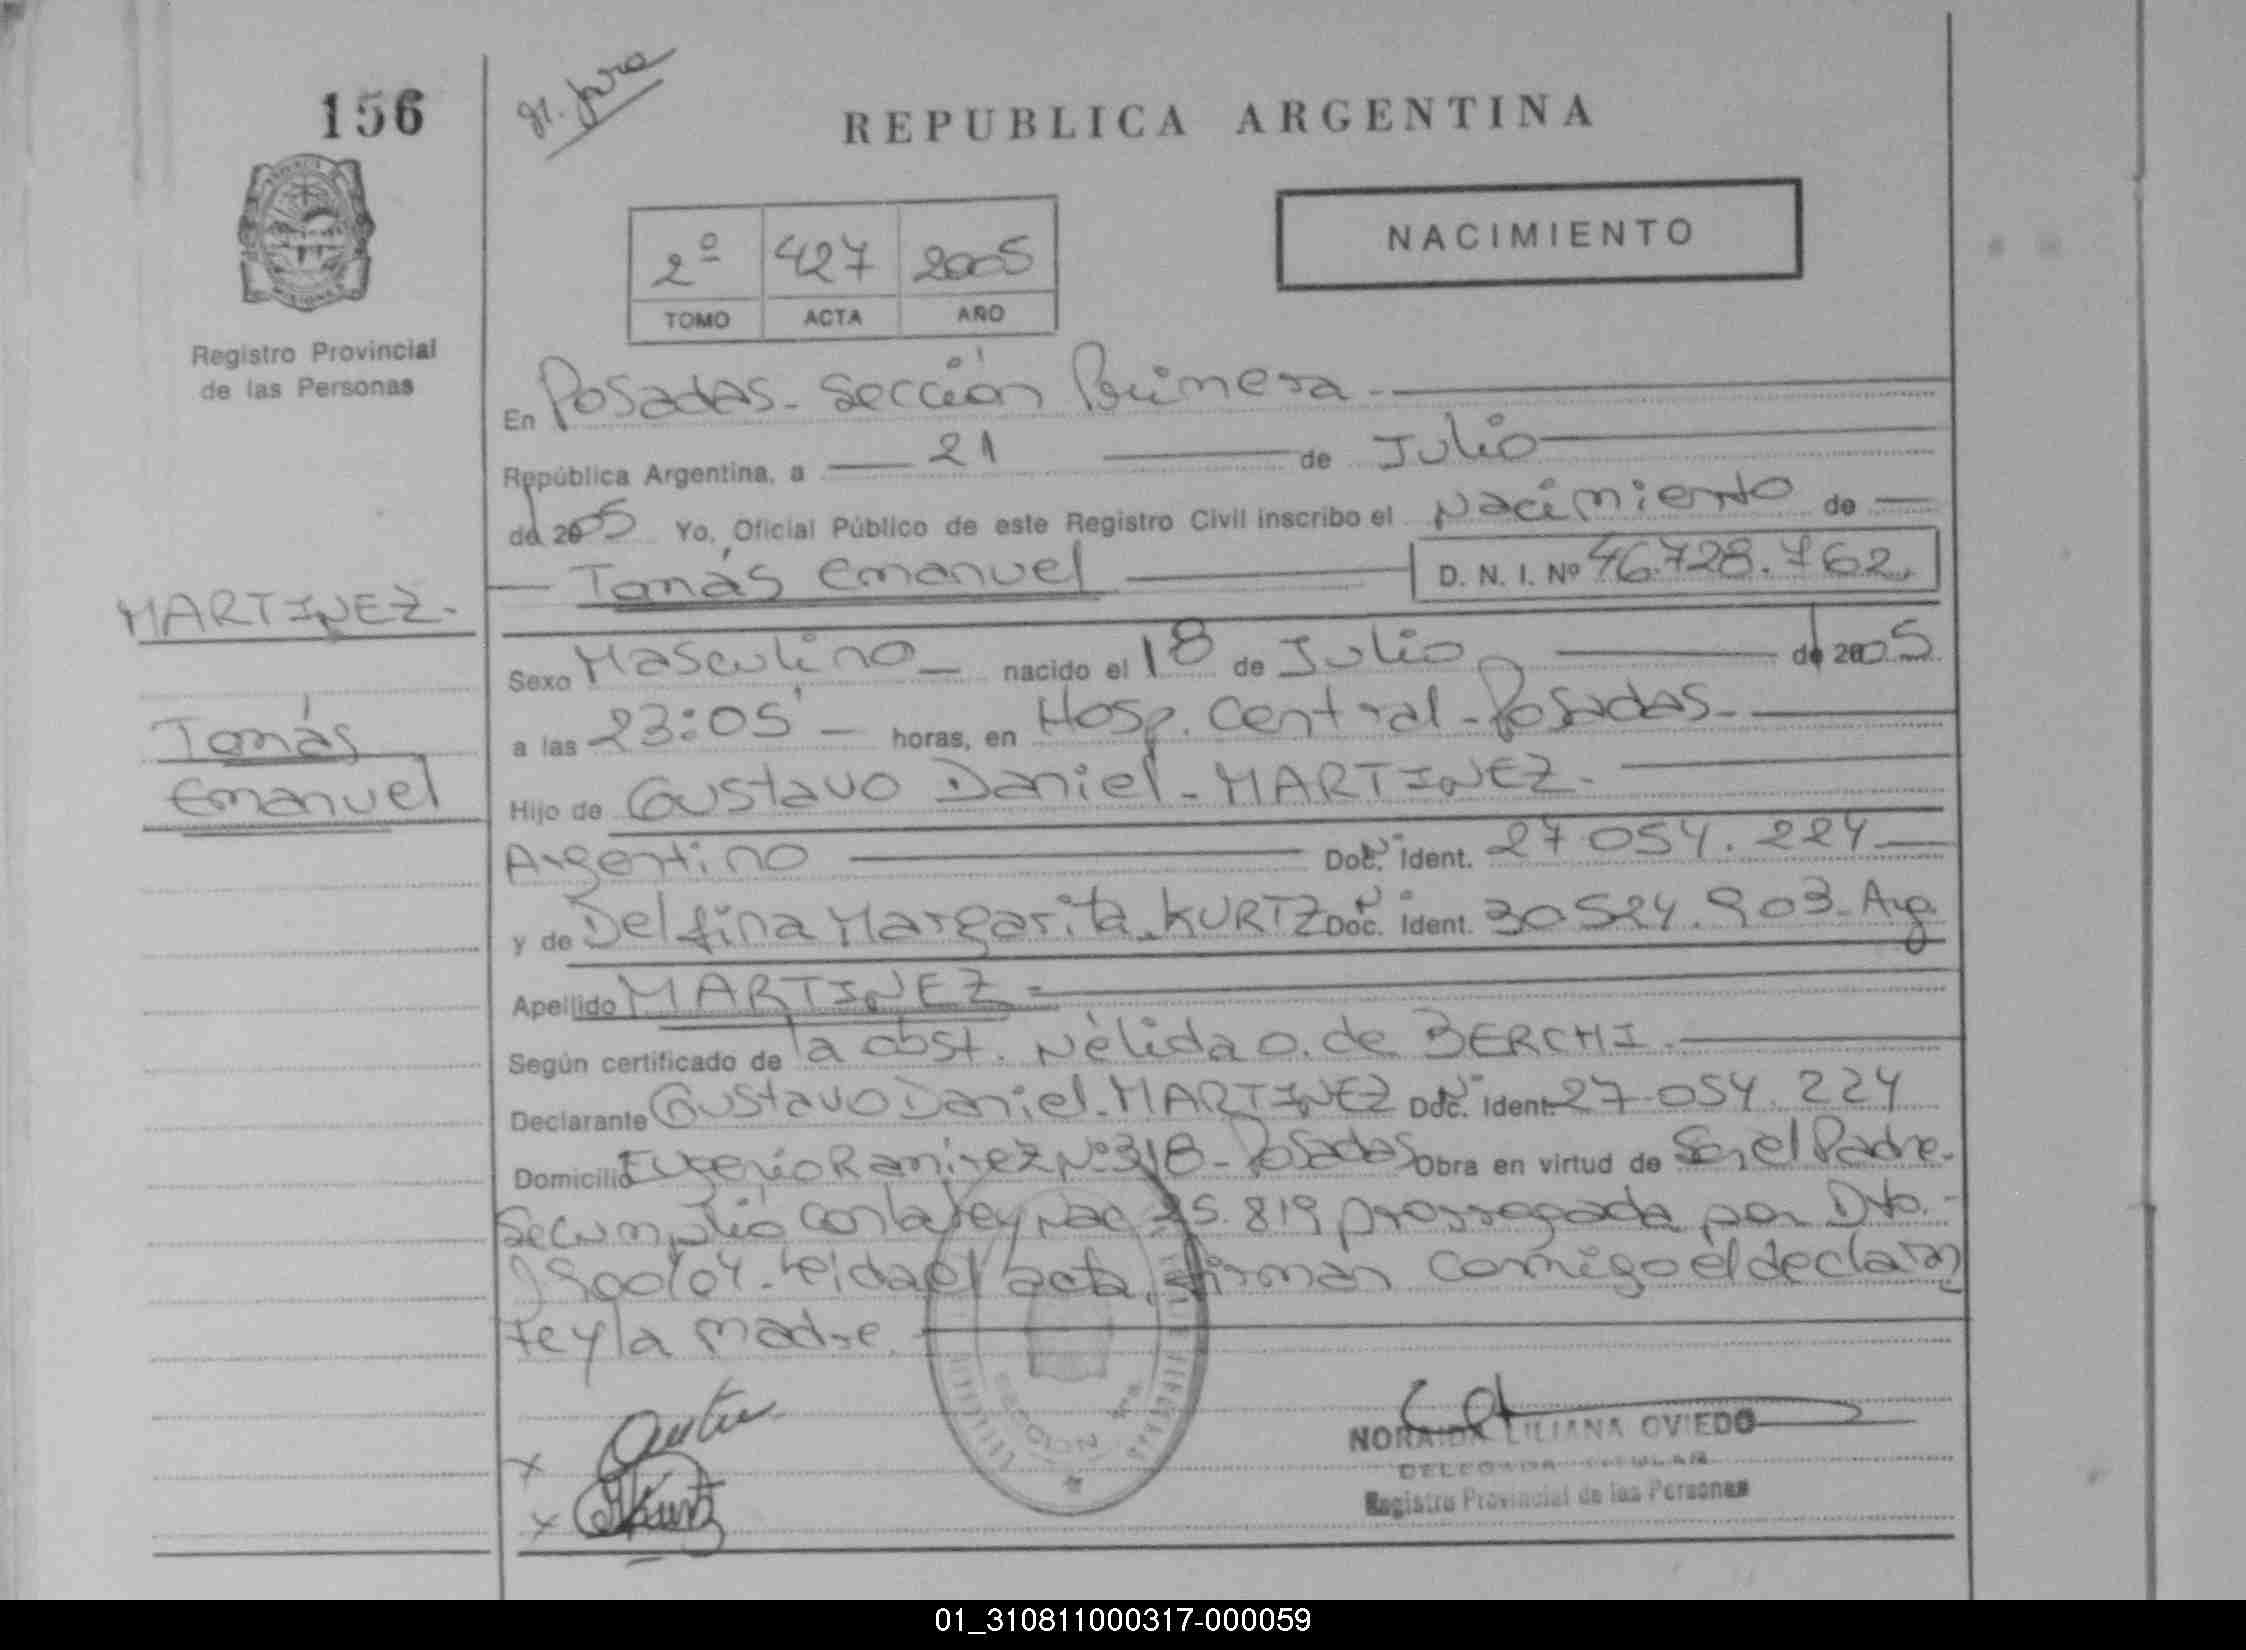 156
REPUBLICA ARGENTINA
NACIMIENTO
2º 427 2005
TOMO ACTA AÑO
Registro Provincial
de las Personas
En Posadas - Sección Primera -
República Argentina, a 21 de Julio
de 2005 Yo, Oficial Público de este Registro Civil inscribo el Nacimiento de
Tomás Emanuel D. N. I. Nº 46.728.762.
MARTINEZ -
Tomás
Emanuel
Sexo Masculino nacido el 18 de Julio de 2005
a las 23:05' horas, en Hosp. Central - Posadas -
Hijo de Gustavo Daniel - MARTINEZ -
Argentino Doc. Ident. 27.054.224
y de Delfina Margarita - KURTZ Doc. Ident. 30.524.903 - Arg.
Apellido MARTINEZ -
Según certificado de la obst. Nélida O. de BERCHI -
Declarante Gustavo Daniel - MARTINEZ Doc. Ident. 27.054.224
Domicilio Eugenio Ramirez Nº 318 - Posadas Obra en virtud de Ser el Padre -
Se cumplió con la Ley Nac. 25.819 prorrogada por Dto. -
1900/04 - Leida el acta, firman conmigo el declaran
te y la madre.
x
x Kurtz
NORAIDA LILIANA OVIEDO
DELEGADA TITULAR
Registro Provincial de las Personas
01_310811000317-000059